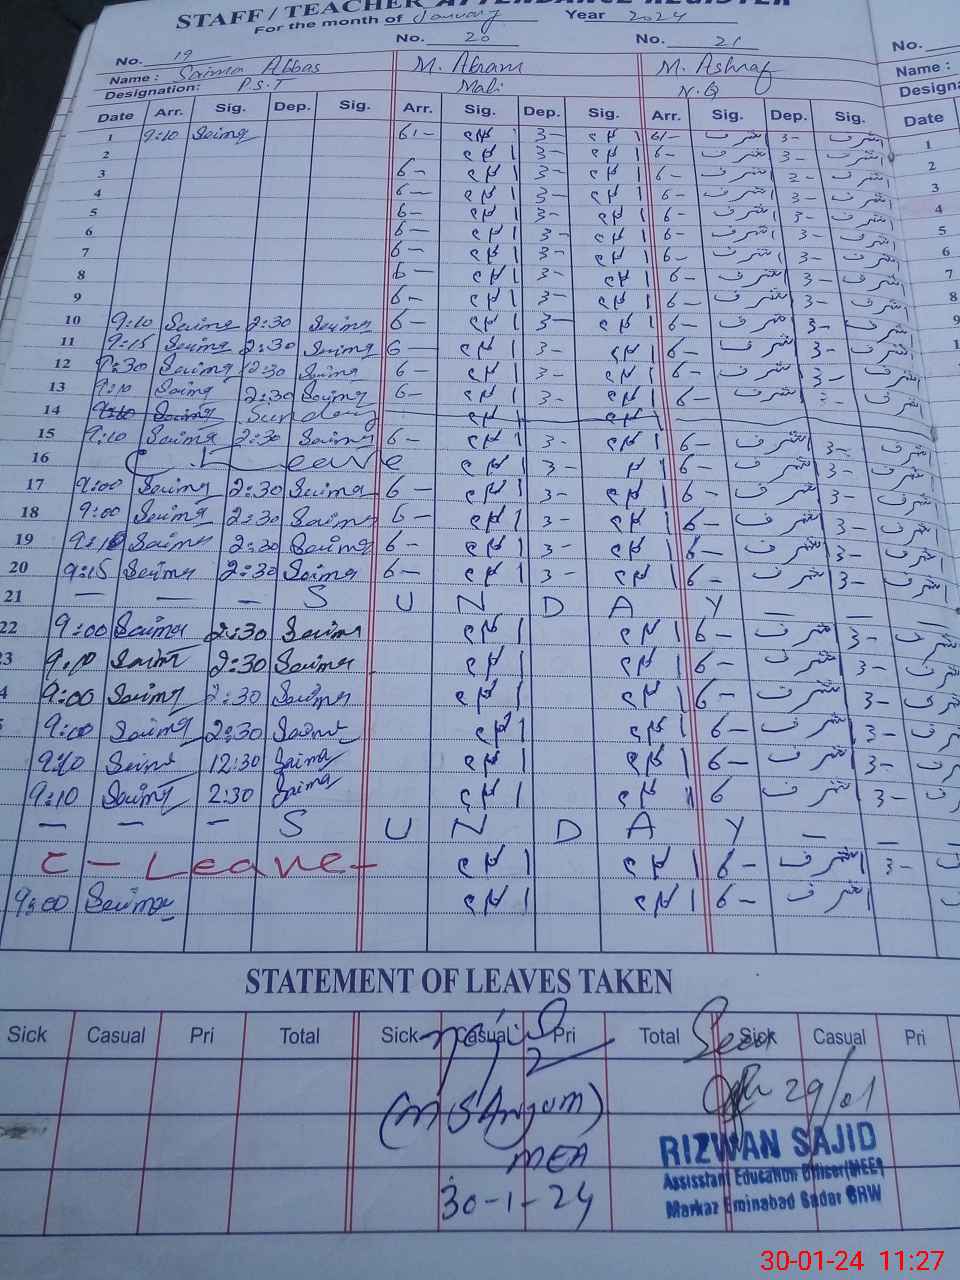 STAFF / TEACHER ATTENDANCE REGISTER
For the month of January Year 2024
No. 19 No. 20 No. 21 No.
Name : Saima Abbas M. Akram M. Ashraf Name :
Designation: P.S.T Mali N.Q
Date Arr. Sig. Dep. Sig. Arr. Sig. Dep. Sig. Arr. Sig. Dep. Sig. Date
1 9:10 Saima 6/- اکرم 3- اکرم 6/- اشرف 3- اشرف 1
2 اکرم 3- اکرم 6- اشرف 3- اشرف 2
3 6- اکرم 3- اکرم 6- اشرف 3- اشرف 3
4 6- اکرم 3- اکرم 6- اشرف 3- اشرف 4
5 6- اکرم 3- اکرم 6- اشرف 3- اشرف 5
6 6- اکرم 3- اکرم 6- اشرف 3- اشرف 6
7 6- اکرم 3- اکرم 6- اشرف 3- اشرف 7
8 6- اکرم 3- اکرم 6- اشرف 3- اشرف 8
9 6- اکرم 3- اکرم 6- اشرف 3- اشرف 9
10 9:10 Saima 2:30 Saima 6- اکرم 3- اکرم 6- اشرف 3- اشرف
11 9:15 Saima 2:30 Saima 6- اکرم 3- اکرم 6- اشرف 3- اشرف
12 9:30 Saima 2:30 Saima 6- اکرم 3- اکرم 6- اشرف 3- اشرف
13 9:10 Saima 2:30 Saima 6- اکرم 3- اکرم 6- اشرف 3- اشرف
14 Saima Sunday اکرم اکرم
15 9:10 Saima 2:30 Saima 6- اکرم 3- اکرم 6- اشرف 3- اشرف
16 C. Leave اکرم 3- 6- اشرف 3- اشرف
17 9:00 Saima 2:30 Saima 6- اکرم 3- اکرم 6- اشرف 3- اشرف
18 9:00 Saima 2:30 Saima 6- اکرم 3- اکرم 6- اشرف 3- اشرف
19 9:10 Saima 2:30 Saima 6- اکرم 3- اکرم 6- اشرف 3- اشرف
20 9:15 Saima 2:30 Saima 6- اکرم 3- اکرم 6- اشرف 3- اشرف
21 — — — S U N D A Y — —
22 9:00 Saima 2:30 Saima اکرم اکرم 6- اشرف 3-
9:10 Saima 2:30 Saima اکرم اکرم 6- اشرف 3-
9:00 Saima 2:30 Saima اکرم اکرم 6- اشرف 3-
9:00 Saima 2:30 Saima اکرم اکرم 6- اشرف 3-
9:10 Saima 12:30 Saima اکرم اکرم 6- اشرف 3-
9:10 Saima 2:30 Saima اکرم اکرم 6 اشرف 3-
— — — S U N D A Y — —
C - Leave اکرم اکرم 6- اشرف 3-
9:00 Saima اکرم اکرم 6- اشرف
STATEMENT OF LEAVES TAKEN
Sick Casual Pri Total Sick Casual Pri Total Sick Casual Pri
Seen
29/01
(M S Anjum)
MEA
30-1-24
RIZWAN SAJID
Assisstant Education Officer(MEE)
Markaz Eminabad Sadar GRW
30-01-24 11:27